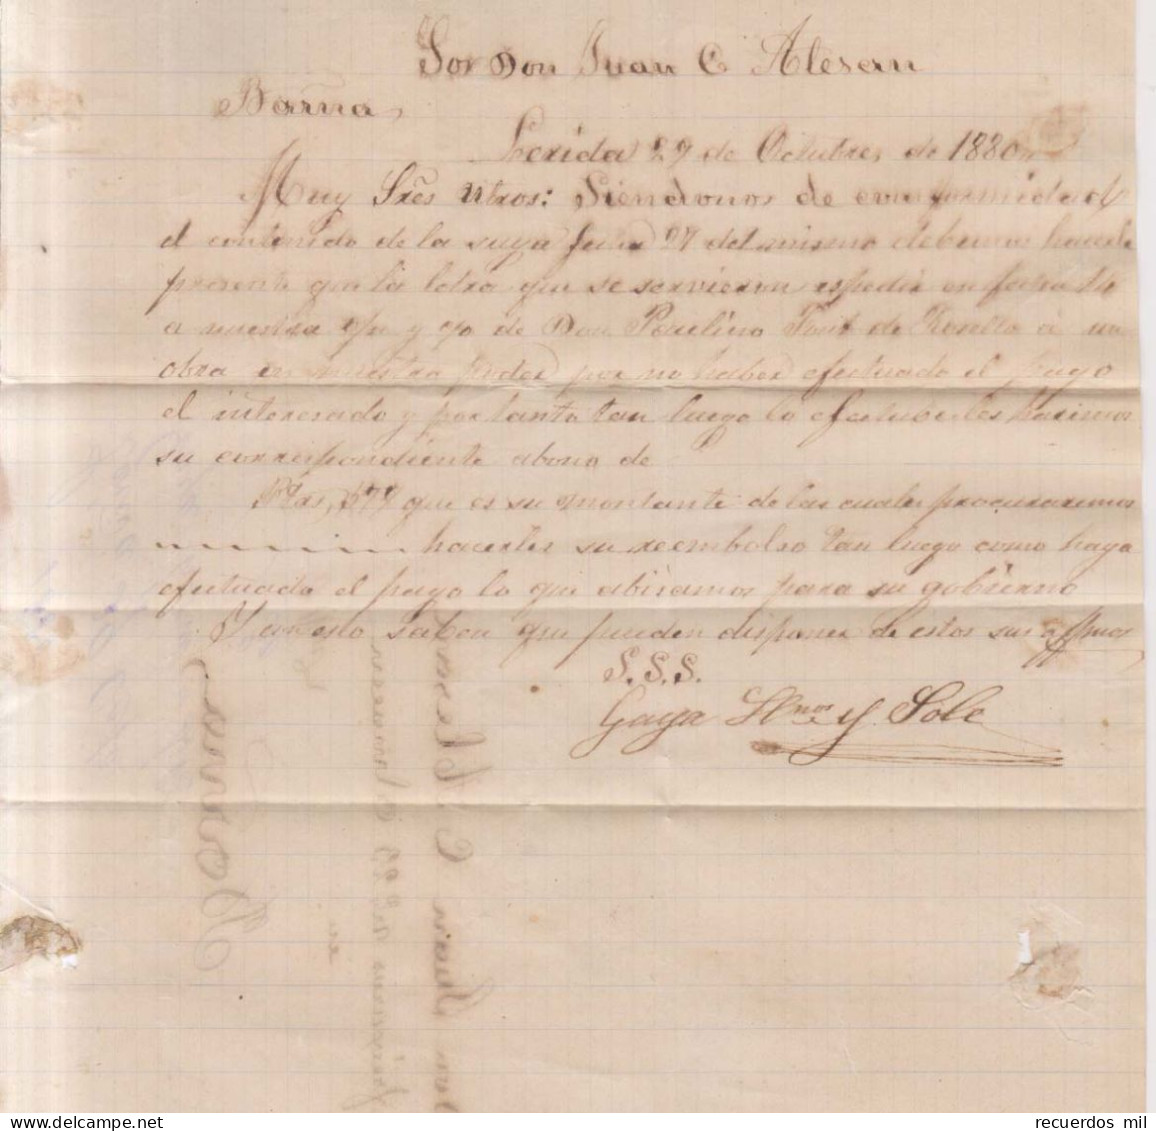 Sor Don Juan C Alesan
Barña
Lerida 29 de Octubre, de 1880
Muy Sres ntros: Siendonos de conformidad
el contenido de la suya fecha 27 del mismo debemos hacerle
presente que la letra que se servieron espedir en fecha 14
a nuestra o/n y c/o de Don Paulino Font de Rosello á un
obra en nuestro poder por no haber efectuado el pago
el interesado y por tanto tan luego lo efectube les haremos
su correspondiente abono de
Ptas, 579 que es su montante de las cuales procuraremos
hacerles su reembolso tan luego como haya
efectuado el pago lo que abisamos para su gobierno
Y con esto saben que pueden disponer de estos sus affmos
S. S. S.
Gaya Hnos y Sole
recuerdos mil